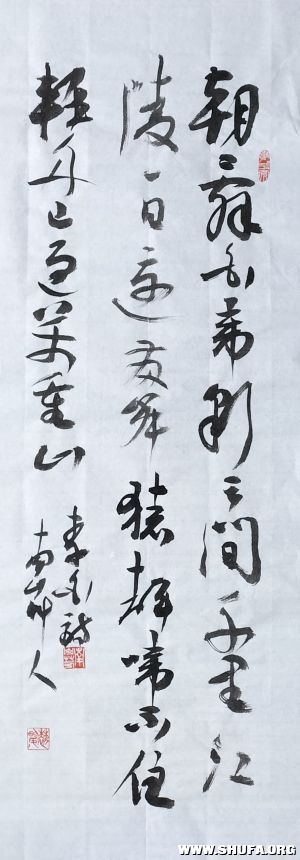 朝辭白帝彩云間千里江
陵一日還兩岸猿聲啼不住
輕舟已過萬重山
李白詩
WWW.SHUFA.ORG